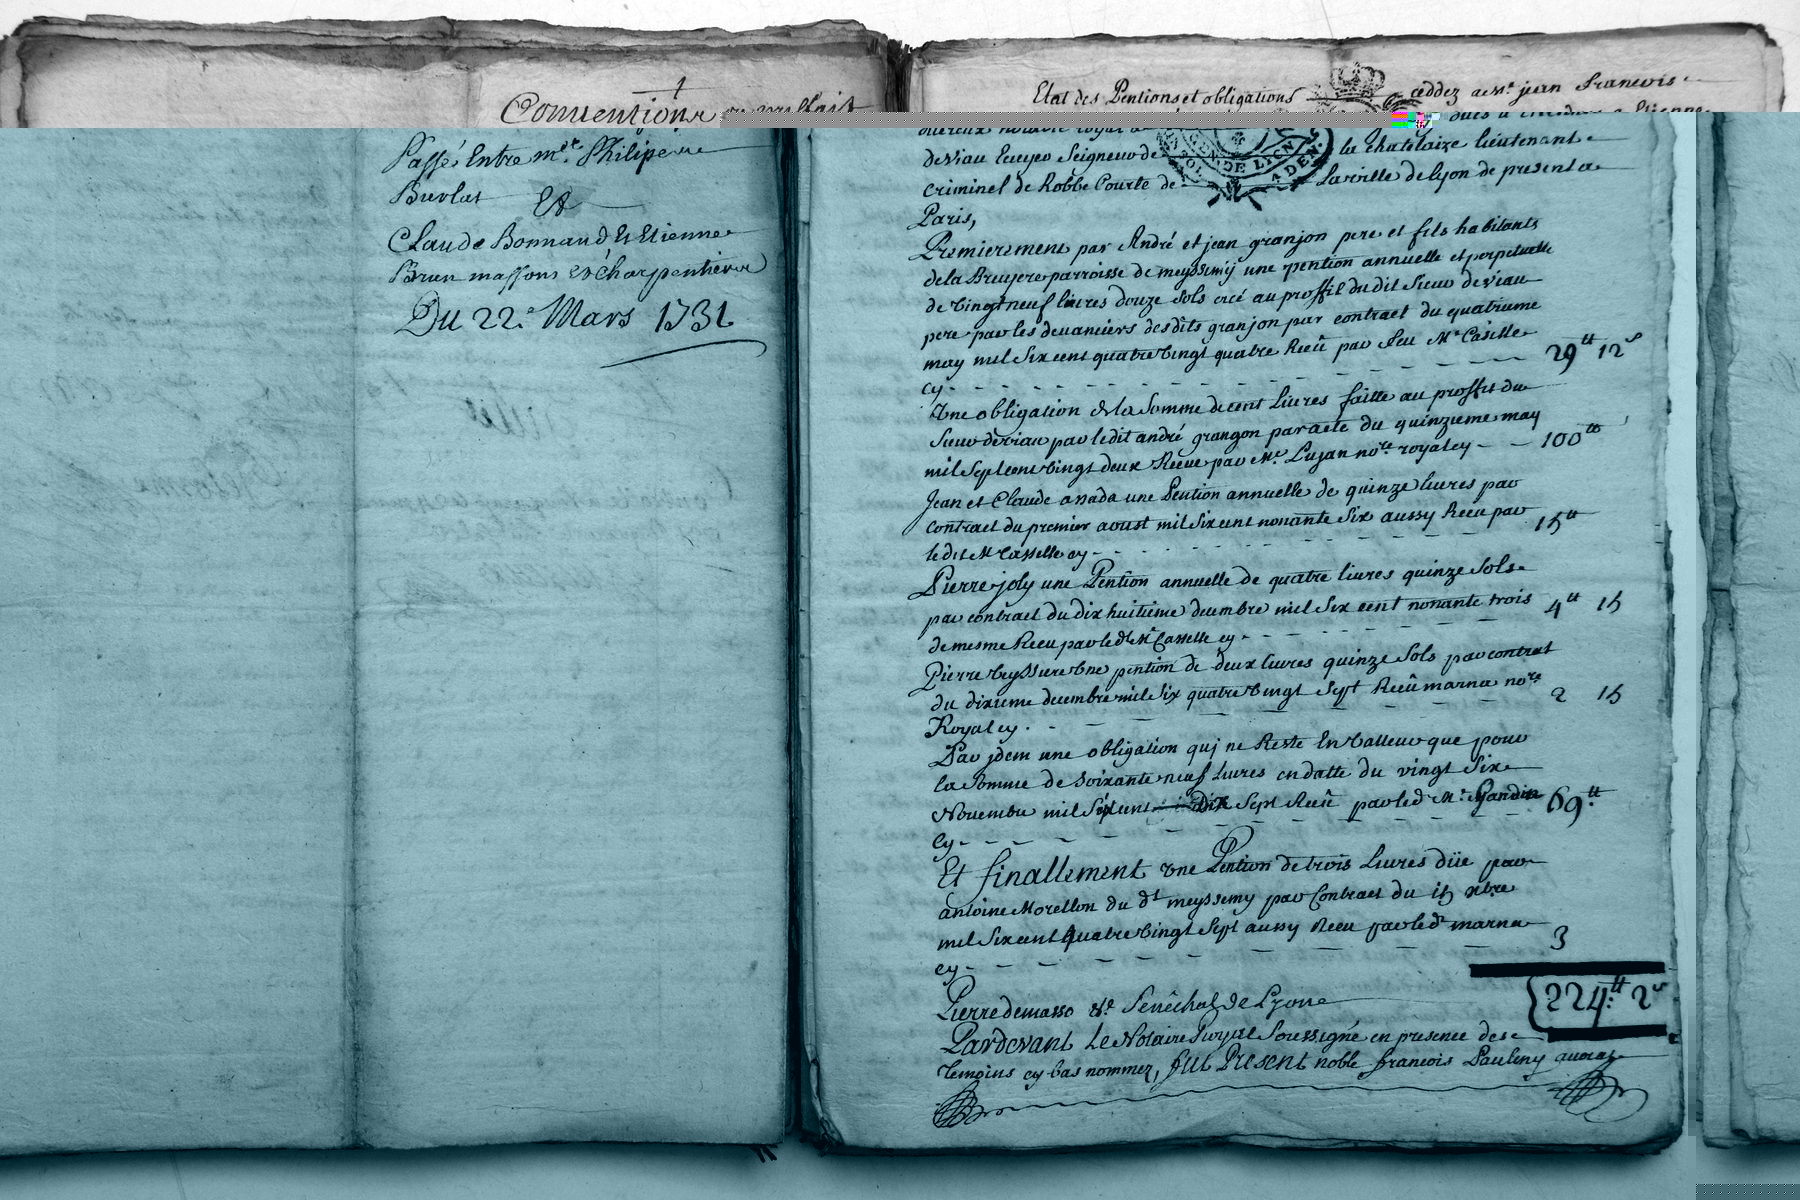 1
Conventions ou prixfait
Passé Entre mre. Philipe
Burlat Et
Claude Bonnand Et Etienne
Brun massons et charpentiers
Du 22e Mars 1731
Etat des Pentions et obligations ceddez a Mr. jean francois
notaire royal a
deviau Escuyer Seigneur de la Chatelaize lieutenant
criminel de Robbe Courte de La ville de lyon de present a
Paris,
Premierement par André et jean granjon pere et fils habitants
de la Bruyere parroisse de meyssemij une pention annuelle et perpetuelle
de vingt neuf livres douze sols creé au proffit du dit Sieur deviau
pere par les devanciers desdits granjon par contract du quatrieme
may mil Six cent quatre vingt quatre Receû par feu Mr Caselle
cy - - - - 29tt 12s
Une obligation de la Somme de cent Livres faitte au proffit du
Sieur deviau par ledit andré granjon par acte du quinzieme may
mil Sept cent vingt deux Receue par Me. Lujan nore. royal cy - - 100tt
Jean et Claude anada une Pention annuelle de quinze livres par
contract du premier aoust mil Six cent nonante Six aussy Receu par
le dit Mr Casselle cy - - - - 15tt
Pierre joly une Pention annuelle de quatre livres quinze Sols
par contract du dix huitieme decembre mil Six cent nonante trois
de mesme Receu par le dt Mr Casselle cy - - - - 4tt 15
Pierre veyssiere Une pention de deux livres quinze Sols par contrat
du dixieme decembre mil Six quatre vingt Sept Receû marna nore
Royal cy - - - - 2 15
Par jdem une obligation quj ne Reste En valleur que pour
la Somme de Soixante neuf Livres en datte du vingt Six
Novembre mil Sept cent Dix Sept Receû par led Mr. 69tt
Cy - - - -
Et finallement Une Pention de trois Livres düe par
antoine Morellon du dt meyssemy par Contract du 15 xbre
mil Six cent Quatre vingt Sept aussy Receu par led marna
cy - - - - 3
224tt 2s
Pierre demasso Sénéchal de Lyon
Pardevant Le Notaire Royal Soussigné en presence des
temoins cy bas nommez, fut Present noble francois Pauleny avocat